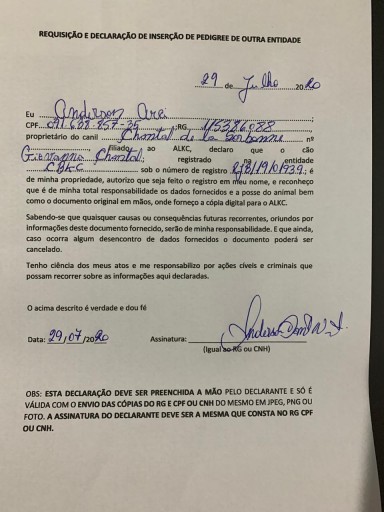 REQUISIÇÃO E DECLARAÇÃO DE INSERÇÃO DE PEDIGREE DE OUTRA ENTIDADE
29 de Julho 2020
Eu Anderson
CPF ;RG
proprietário do canil Chantal de la nº
filiado ao ALKC, declaro que o cão
Giovanna Chantal; registrado na entidade
CBKC sob o número de registro ; é
de minha propriedade, autorizo que seja feito o registro em meu nome, e reconheço
que é de minha total responsabilidade os dados fornecidos e a posse do animal bem
como o documento original em mãos, onde forneço a cópia digital para o ALKC.
Sabendo-se que quaisquer causas ou consequências futuras recorrentes, oriundos por
informações deste documento fornecido, serão de minha responsabilidade. E que ainda,
caso ocorra algum desencontro de dados fornecidos o documento poderá ser
cancelado.
Tenho ciência dos meus atos e me responsabilizo por ações cíveis e criminais que
possam recorrer sobre as informações aqui declaradas.
O acima descrito é verdade e dou fé
Data: 29/07/2020 Assinatura:
(Igual ao RG ou CNH)
OBS: ESTA DECLARAÇÃO DEVE SER PREENCHIDA A MÃO PELO DECLARANTE E SÓ É
VÁLIDA COM O ENVIO DAS CÓPIAS DO RG E CPF OU CNH DO MESMO EM JPEG, PNG OU
FOTO. A ASSINATURA DO DECLARANTE DEVE SER A MESMA QUE CONSTA NO RG CPF
OU CNH.